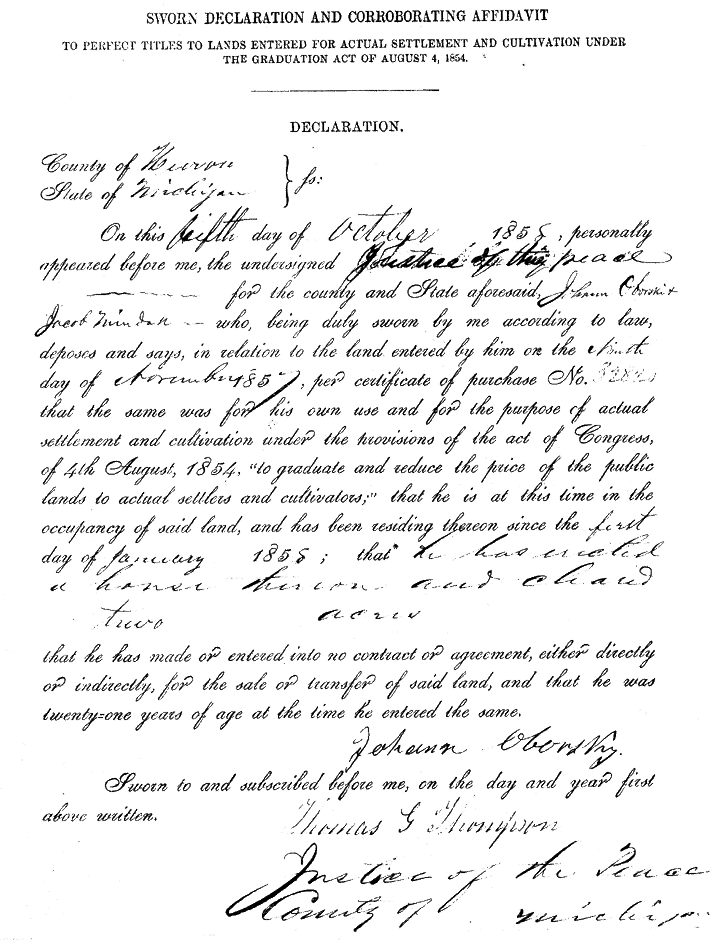 SWORN DECLARATION AND CORROBORATING AFFIDAVIT
TO PERFECT TITLES TO LANDS ENTERED FOR ACTUAL SETTLEMENT AND CULTIVATION UNDER
THE GRADUATION ACT OF AUGUST 4, 1854.
DECLARATION.
County of Huron
State of Michigan } ss:
On this fifth day of October 1858, personally
appeared before me, the undersigned Justice of the peace
for the county and State aforesaid, Johann Oborski &
Jacob who, being duly sworn by me according to law,
deposes and says, in relation to the land entered by him on the Ninth
day of November 1857, per certificate of purchase No.
that the same was for his own use and for the purpose of actual
settlement and cultivation under the provisions of the act of Congress,
of 4th August, 1854, "to graduate and reduce the price of the public
lands to actual settlers and cultivators;" that he is at this time in the
occupancy of said land, and has been residing thereon since the first
day of January 1858; that he has erected
a house thereon and cleard
two acres
that he has made or entered into no contract or agreement, either directly
or indirectly, for the sale or transfer of said land, and that he was
twenty=one years of age at the time he entered the same.
Johann Oborsky.
Sworn to and subscribed before me, on the day and year first
above written.
Thomas G Thompson
Justice of the Peace
County of Michigan